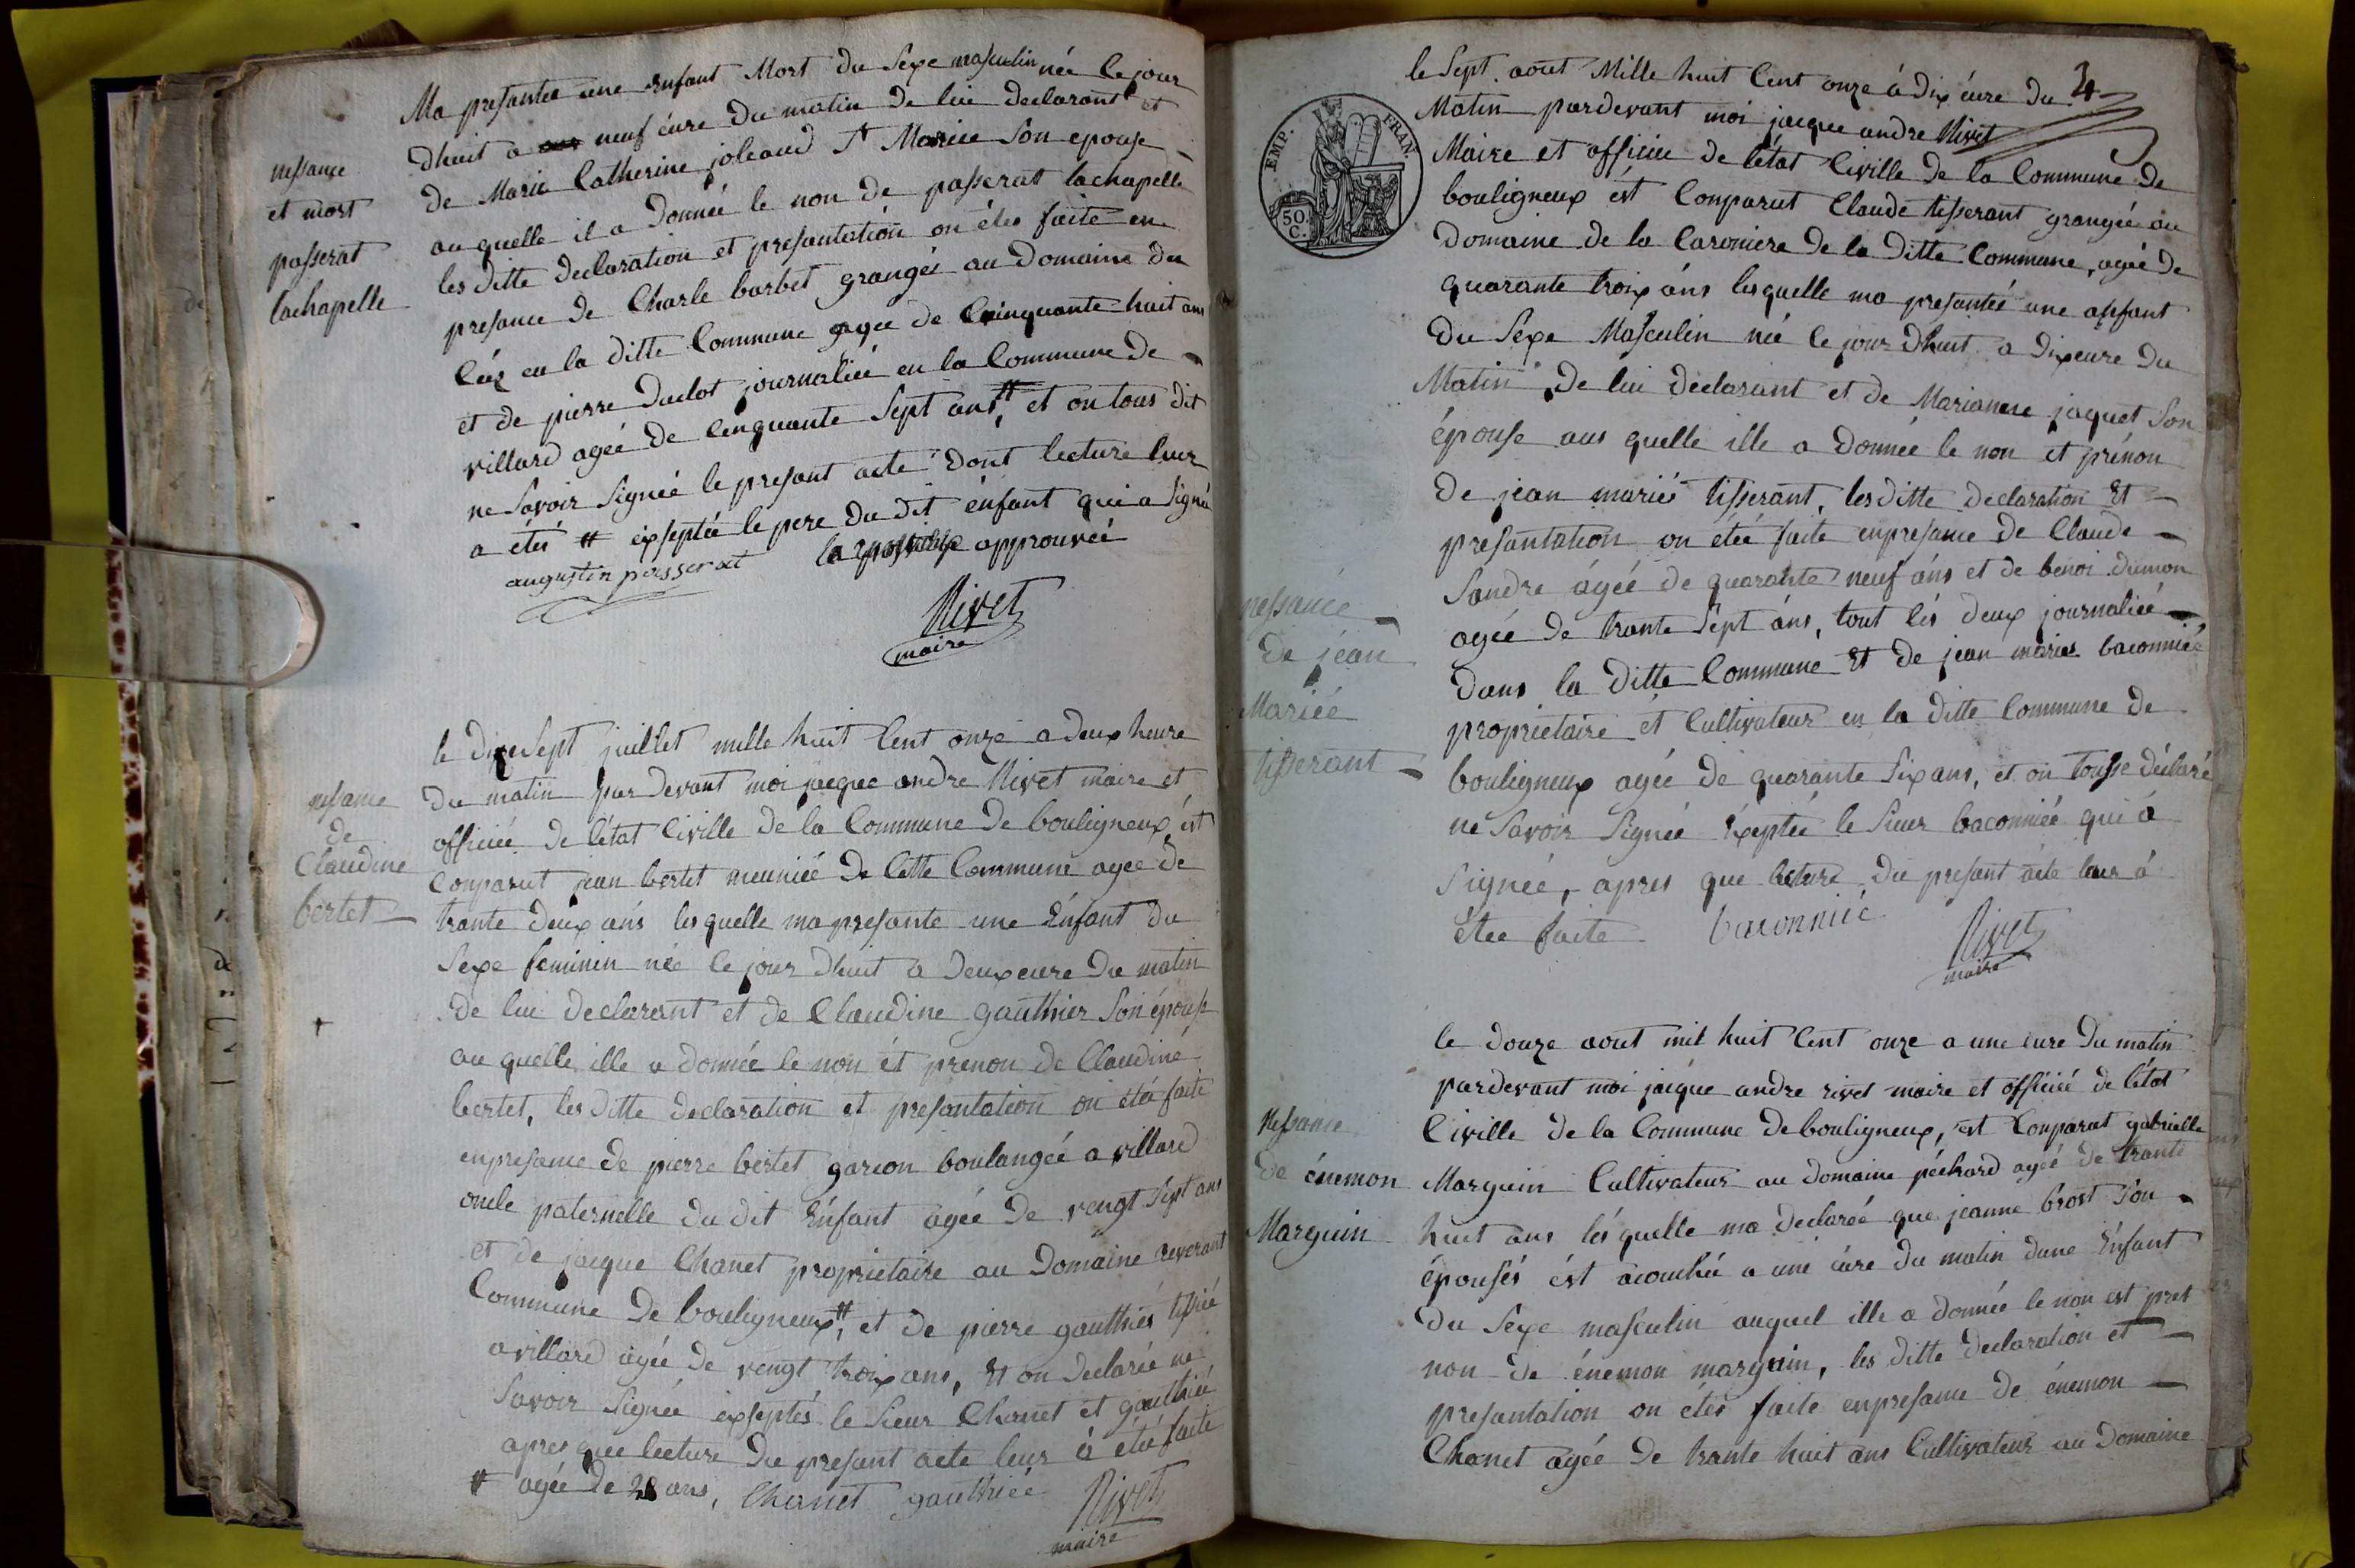 Ma presantée une enfant Mort du Sexe masculin née le jour
dhuit a neuf eure du matin de lui declarant et
de Marie Catherine joleaud St Marice Son epouse
au quelle il a Donnée le non de passerat lachapelle
les ditte declaration et presantation on étés faite en
presance de Charle barbet grangés au Domaine du
en la ditte Commune agee de Cinquante huit ans
et de pierre Duclot journaliée en la Commune de
villard agée de Cinquante Sept ans # et on tous dit
ne Savoir Signée le presant acte dont lecture leur
a étés # exseptée le pere du dit énfant qui a Signé
augustin passerat
approuvée
Rivet
maire
nessance
et mort
passerat
lachapelle
le dixeSept juillet mille huit Cent onze a deux heure
du matin par devant moi jacque andre Rivet maire et
officiée de létat Civille de la Commune de bouligneux, ést
Conparut jean bertet meuniée de Cette Commune agee de
trante deux ans lesquelle ma presante une Énfant du
Sexe feminin née le jour dhuit a deux eure du matin
de lui declarant et de Claudine gauthier Son épouse
au quelle ille a donnée le non ét prenon de Claudine
bertet, les ditte declaration et presantation on étéé faite
enpresance de pierre bertet garcon boulangée a villard
oncle paternelle du dit Énfant agée de vengt Sept ans
et de jacque Chanet proprietaire au Domaine reverant
Commune de bouligneux #, et de pierre gauthiés tissié
a villard agée de vengt troix ans, Et on declarée ne
Savoir Signée exseptés le Sieur Chanet et gauthiée
apres que lecture du presant acte leur a étéé faite
# agée de 28 ans, Chanet gauthiée Rivet
maire
nessance
de
Claudine
bertet
4
le Sept aout Mille huit Cent onze á dix éure du
Matin pardevant moi jacque andre Rivet
Maire et officiee de létat Civille de la Commune de
bouligneux ést Comparut Claude tisserant grangée au
Domaine de la Caroniere de la Ditte Commune, agée de
quarante troix áns lesquelle ma presantés une anfant
du Sexe Masculin née le jour Dhuit a dix eure du
Matin de lui declarant et de Marianne jaquet Son
épouse aus quelle ille a Donnée le non et prénon
de jean mariés tisserant, les ditte declaration Et
presantation on étéé faite enpresance de Claude
Sandre ágée de quarante neuf áns et de benoi dumon
agée de trante Sept áns, tout lés deux journaliéé
dans la Ditte Commune Et de jean mariés baconniée
proprietaire ét Cultivateur en la ditte Commune de
bouligneux agée de quarante Six ans, et on tousse déclaré
ne Savoir Signée Exeptée le Sieur baconniée qui á
Signée, apres que lecture du presant ácte leur á
étee faite baconniée Rivet
maire
nessance
de jean
Mariéé
tisserant
EMP. FRAN.
50. C.
le douze aout mil huit Cent onze a une eure du matin
pardevant moi jacque andre rivet maire et officiré de létat
Civille de la Commune de bouligneux, est Conparut gabrielle
Marguin Cultivateur au domaine péchard agée de trante
huit ans lésquelle ma declarée que jeanne brost Son
épousés ést acouchée a une éure du matin dune Énfant
du Sexe masculin auquel ille a donnée le non est pret
non de énemon marguin, les ditte declaration et
presantation on étés faite enpresance de énemon
Chanet agée de trante huit ans Cultivateur au domaine
Nessance
de énemon
Marguin